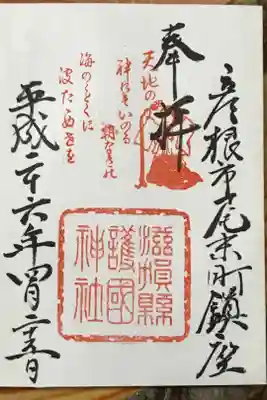 彦根市尾末町鎮座
奉拝
天地の
神にそいのる
朝なきの
海のことくに
波たゝぬ世を
滋賀縣
護國
神社
平成二十六年四月